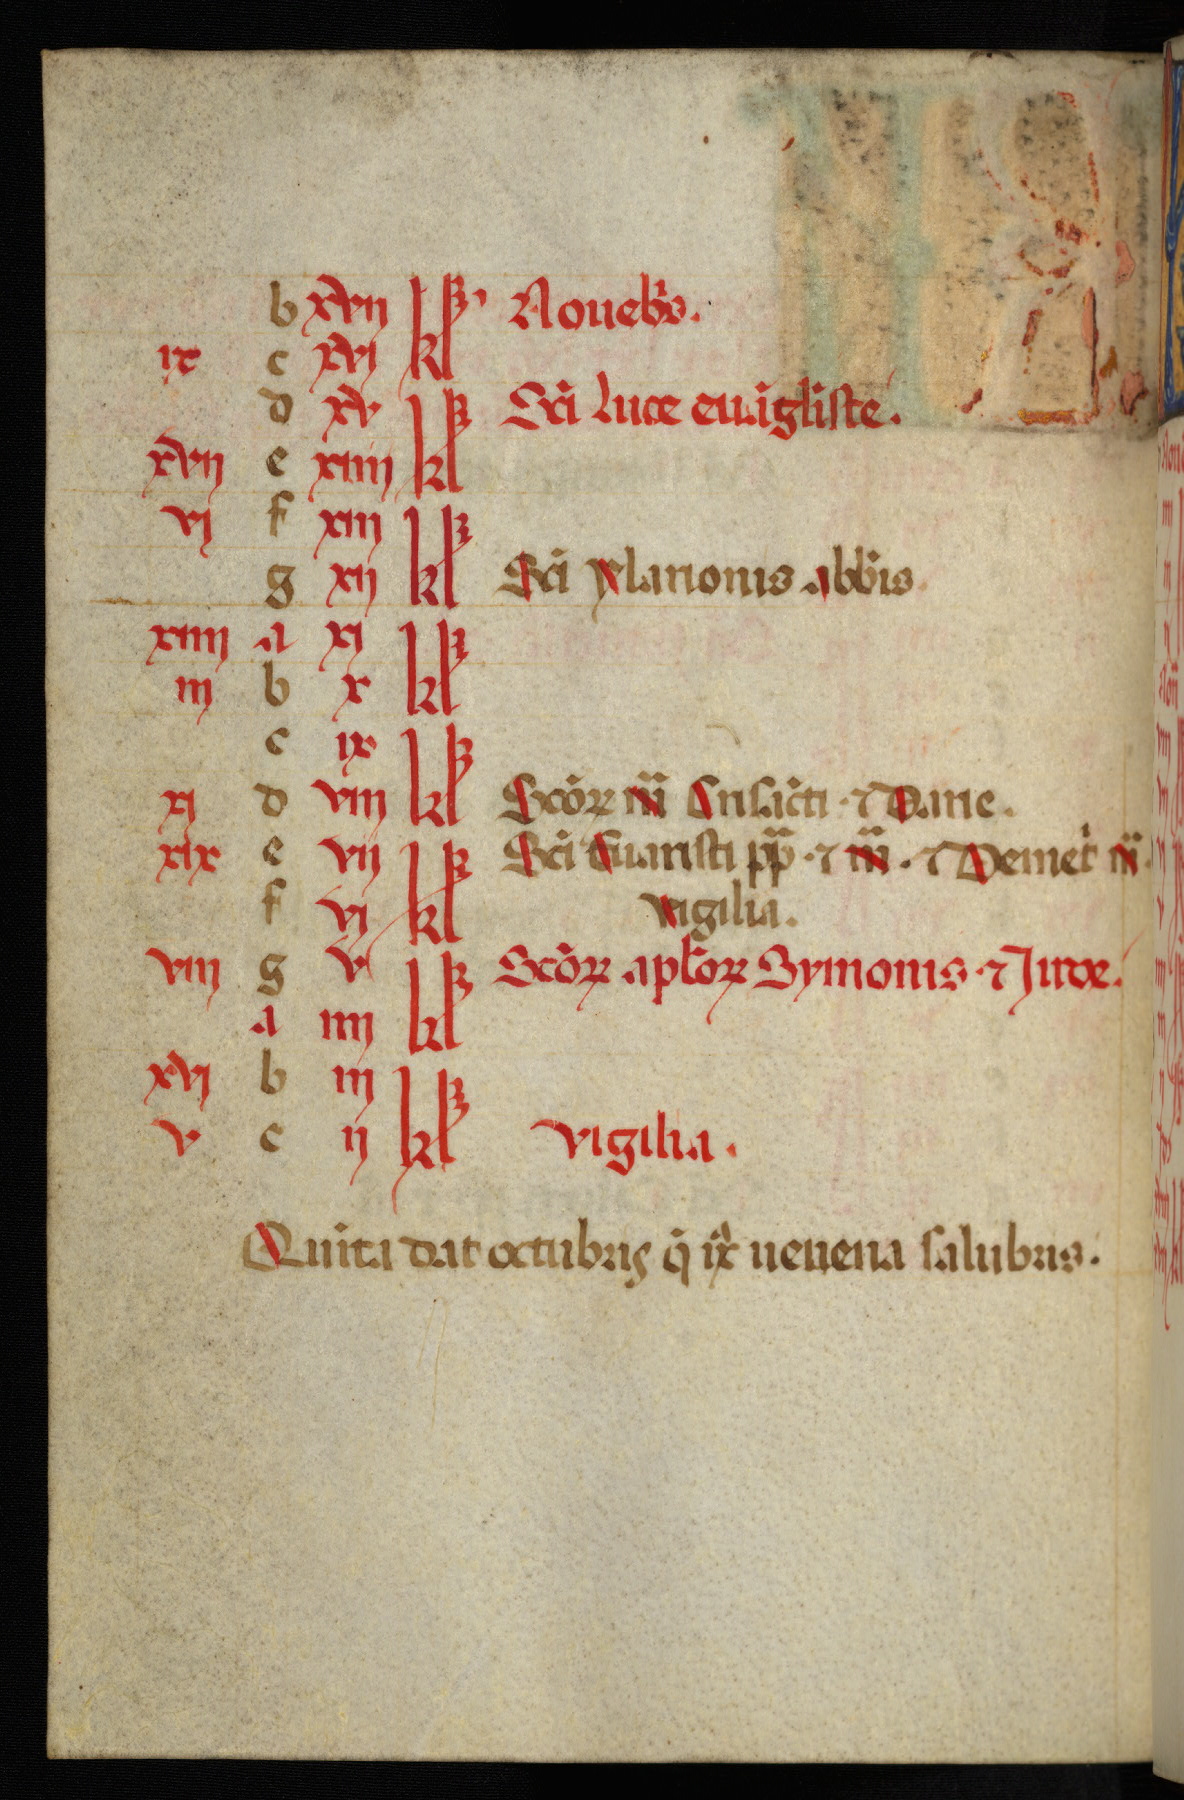 b xvii kl' Nouebr̄s.
ix c xvi kl
d xv kl Sc̄i luce euāgliste.
xvii e xiiii kl
vi f xiii kl
g xii kl Sc̄i ylarionis abb̄is.
xiiii a xi kl
iii b x kl
c ix kl
xi d viii kl Sc̄oꝝ m̄ Crisāti · ⁊ Darie.
xix e vii kl Sc̄i Euaristi pp̄ · ⁊ m̄ · ⁊ Demet̄ m̄.
f vi kl vigilia.
viii g v kl Sc̄oꝝ apl̄oꝝ Symonis · ⁊ Jude.
a iiii kl
xvi b iii kl
v c ii kl vigilia.
Quīta dat octubris q̄ ix uenena salubris.